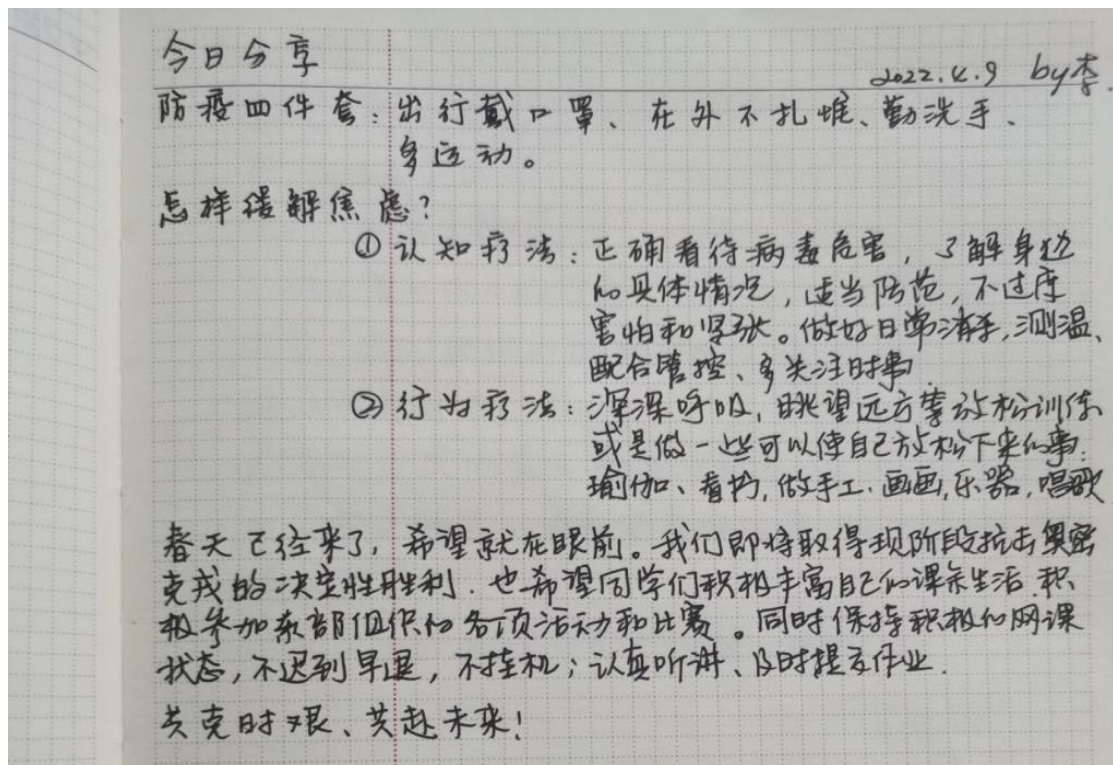 今日分享
2022.4.9 by李.
防疫四件套：出行戴口罩、在外不扎堆、勤洗手、
多运动。
怎样缓解焦虑？
① 认知疗法：正确看待病毒危害，了解身边
的具体情况，适当防范，不过度
害怕和紧张。做好日常消杀，测温、
配合管控、多关注时事.
② 行为疗法：深深呼吸，眺望远方等放松训练
或是做一些可以使自己放松下来的事：
瑜伽、看书，做手工、画画，乐器，唱歌
春天已经来了，希望就在眼前。我们即将取得现阶段抗击奥密
克戎的决定性胜利．也希望同学们积极丰富自己的课余生活．积
极参加系部组织的各项活动和比赛。同时保持积极的网课
状态，不迟到早退，不挂机；认真听讲、及时提交作业．
共克时艰、共赴未来！